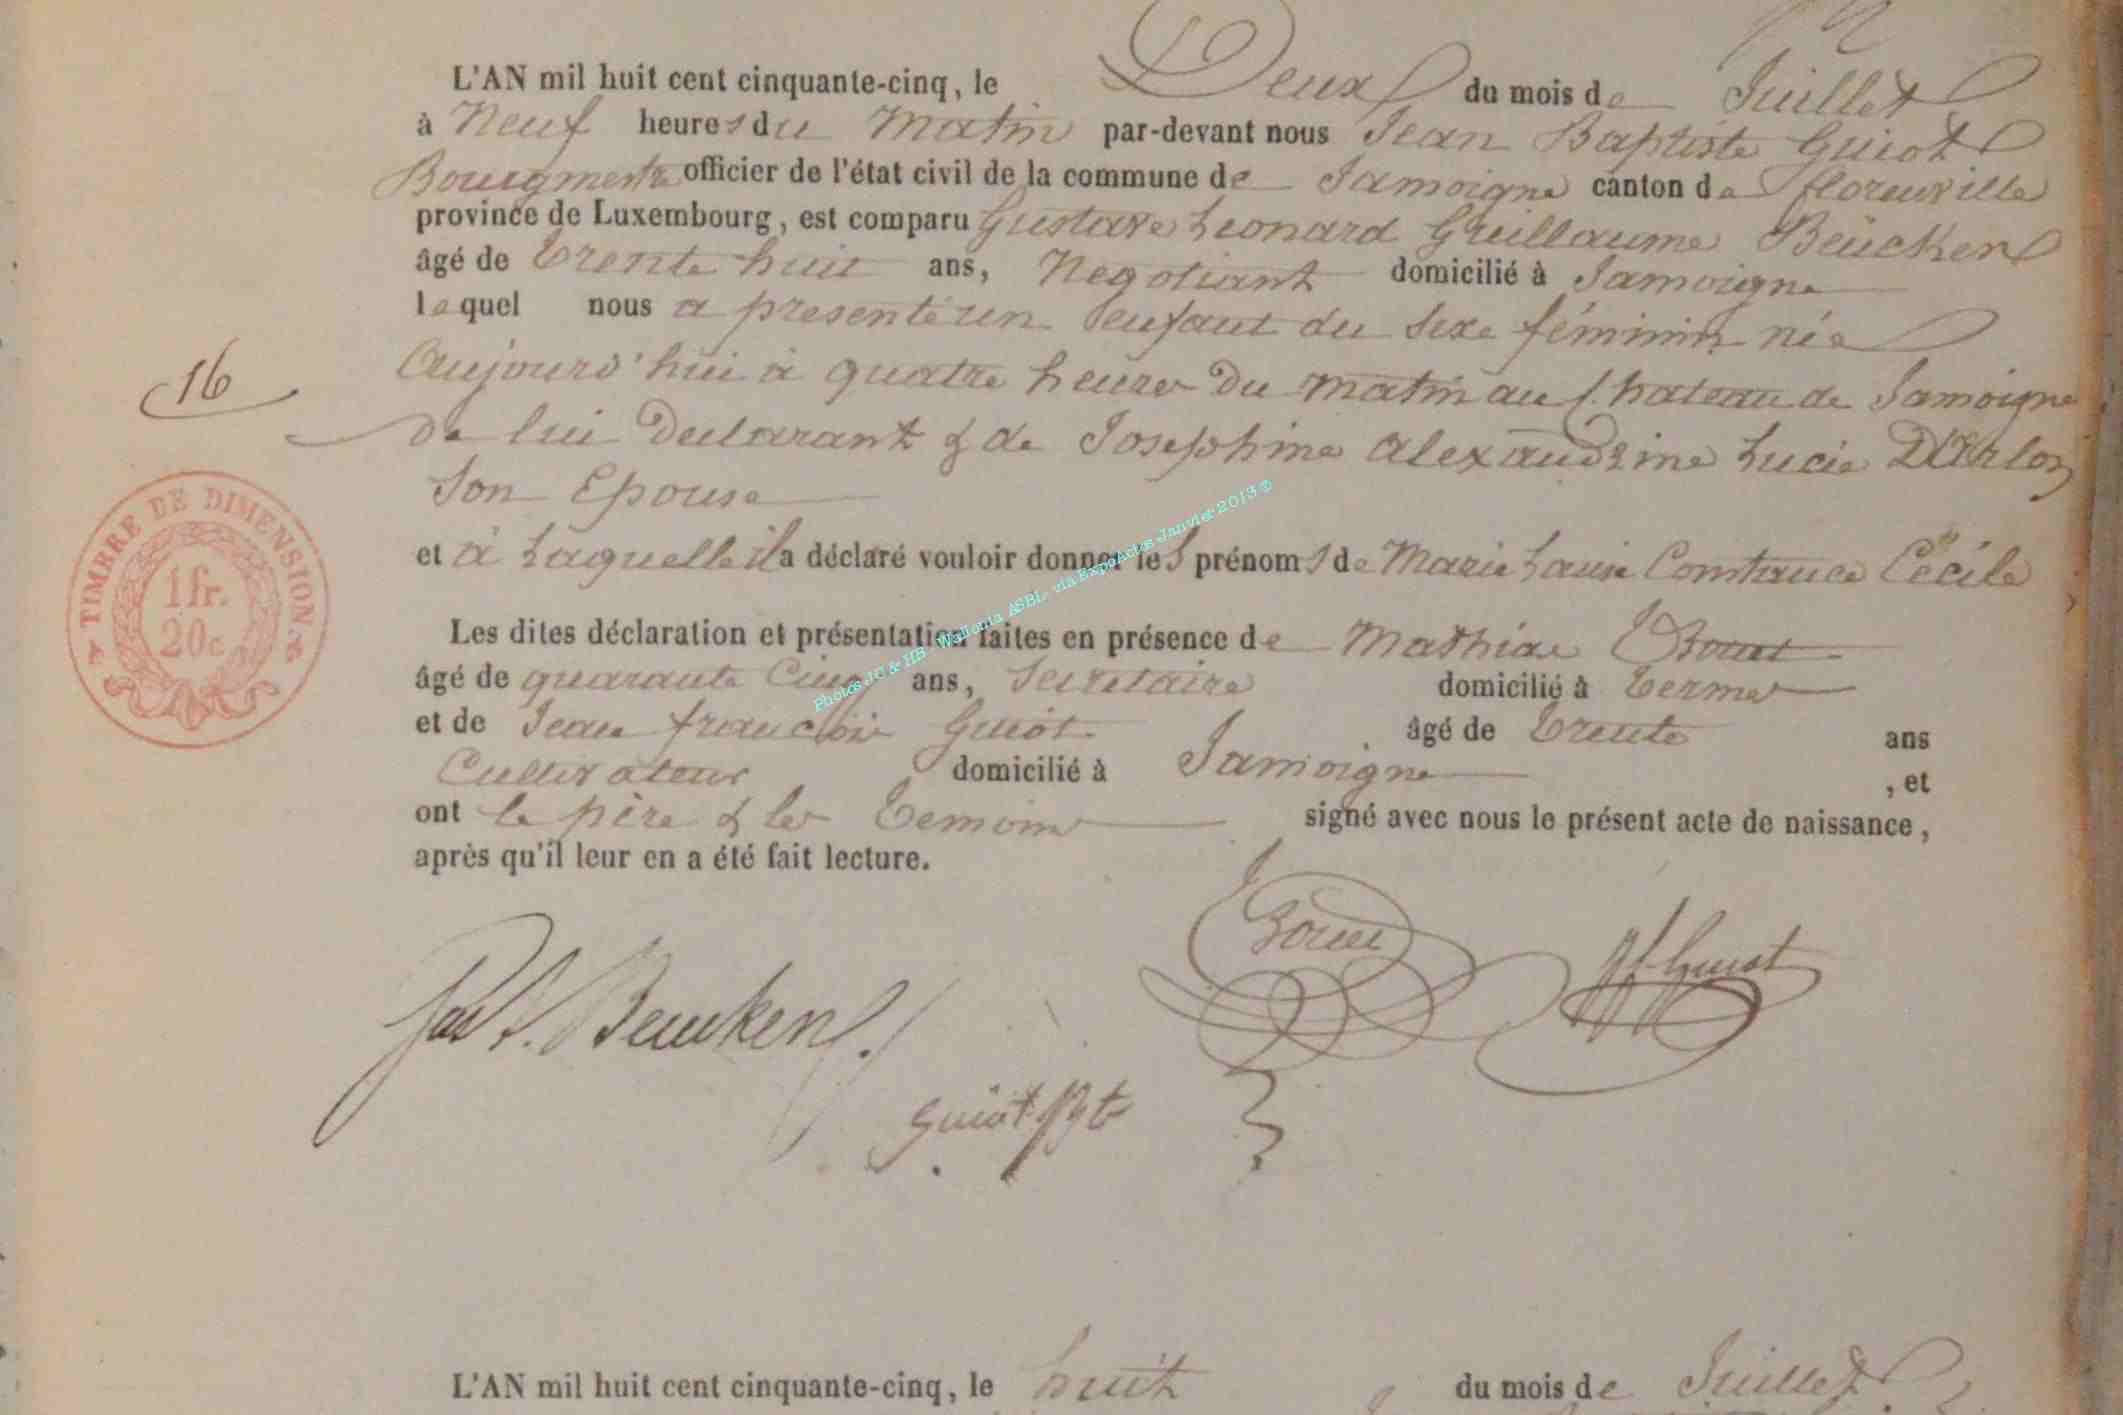 L'AN mil huit cent cinquante-cinq, le Deux du mois de Juillet
à Neuf heures du Matin par-devant nous Jean Baptiste Guiot
Bourgmestre officier de l'état civil de la commune de Jamoigne canton de florenville
province de Luxembourg, est comparu Gustave Leonard Guillaume Beücken
âgé de trente huit ans, Negotiant domicilié à Jamoigne
lequel nous a presenté un enfant du sexe féminin née
Aujourd'hui à quatre heures Du matin au Chateau de Jamoigne
16
De lui Declarant & de Josephine Alexandrine Lucie D'Arlon
Son Epouse
et à Laquelle il a déclaré vouloir donner les prénoms de Marie Louise Constance Cécile
TIMBRE DE DIMENSION.
1 fr.
20 c
Photos JC & HB - Wallonia ASBL via ExpoActes Janvier 2013 ©
Les dites déclaration et présentation faites en présence de Mathias
âgé de quarante Cinq ans, Secretaire domicilié à Termes
et de Jean françois Guiot âgé de Trente ans
Cultivateur domicilié à Jamoigne , et
ont le père & les Temoins signé avec nous le présent acte de naissance,
après qu'il leur en a été fait lecture.
Beucken
Guiot
Guiot Bte
L'AN mil huit cent cinquante-cinq, le huit du mois de Juillet